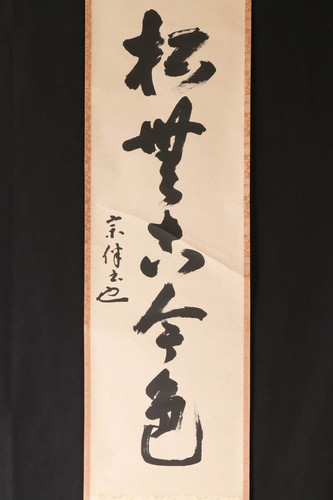 松無古今色
宗伴書也